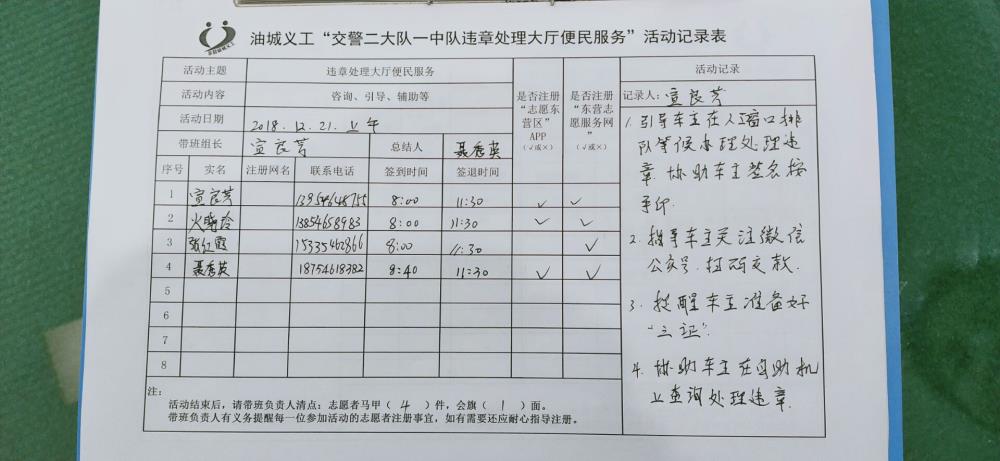 油城义工“交警二大队一中队违章处理大厅便民服务”活动记录表
活动主题 违章处理大厅便民服务
活动内容 咨询、引导、辅助等
活动日期 2018.12.21.上午
带班组长 宣良芳 总结人 聂秀英
是否注册“志愿东营区”APP(√或×)
是否注册“东营志愿服务网”(√或×)
序号 实名 注册网名 联系电话 签到时间 签退时间
1 宣良芳 8:00 11:30 √ √
2 13854658983 8:00 11:30 √ √
3 张红霞 15335462866 8:00 11:30 √
4 聂秀英 18754618382 8:40 11:30 √ √
5
6
7
8
注:
活动结束后,请带班负责人清点:志愿者马甲(4)件,会旗(1)面。
带班负责人有义务提醒每一位参加活动的志愿者注册事宜,如有需要还应耐心指导注册。
活动记录
记录人:宣良芳
1. 引导车主在人工窗口排
队等候办理处理违
章.协助车主签名按
手印.
2. 指导车主关注微信
公众号.扫码交款.
3. 提醒车主准备好
“三证”.
4. 协助车主在自助机
上查询处理违章.